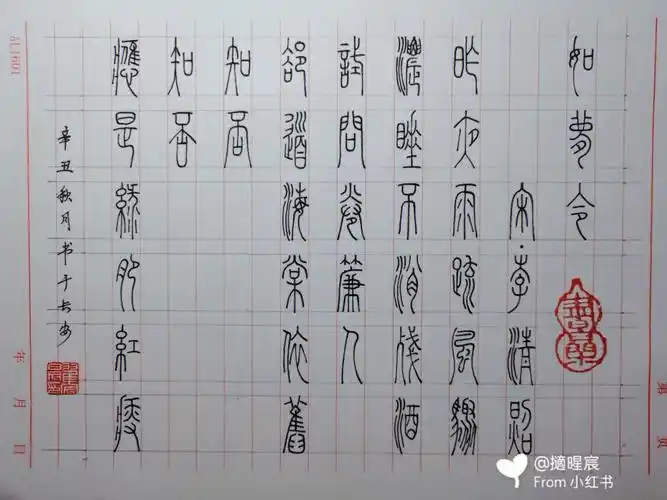 如夢令
宋·李清照
昨夜雨疏風驟
濃睡不消殘酒
試問卷簾人
卻道海棠依舊
知否
知否
應是綠肥紅瘦
辛丑秋月书于长安
年 月 日
第 页
@摘暒宸
From 小红书